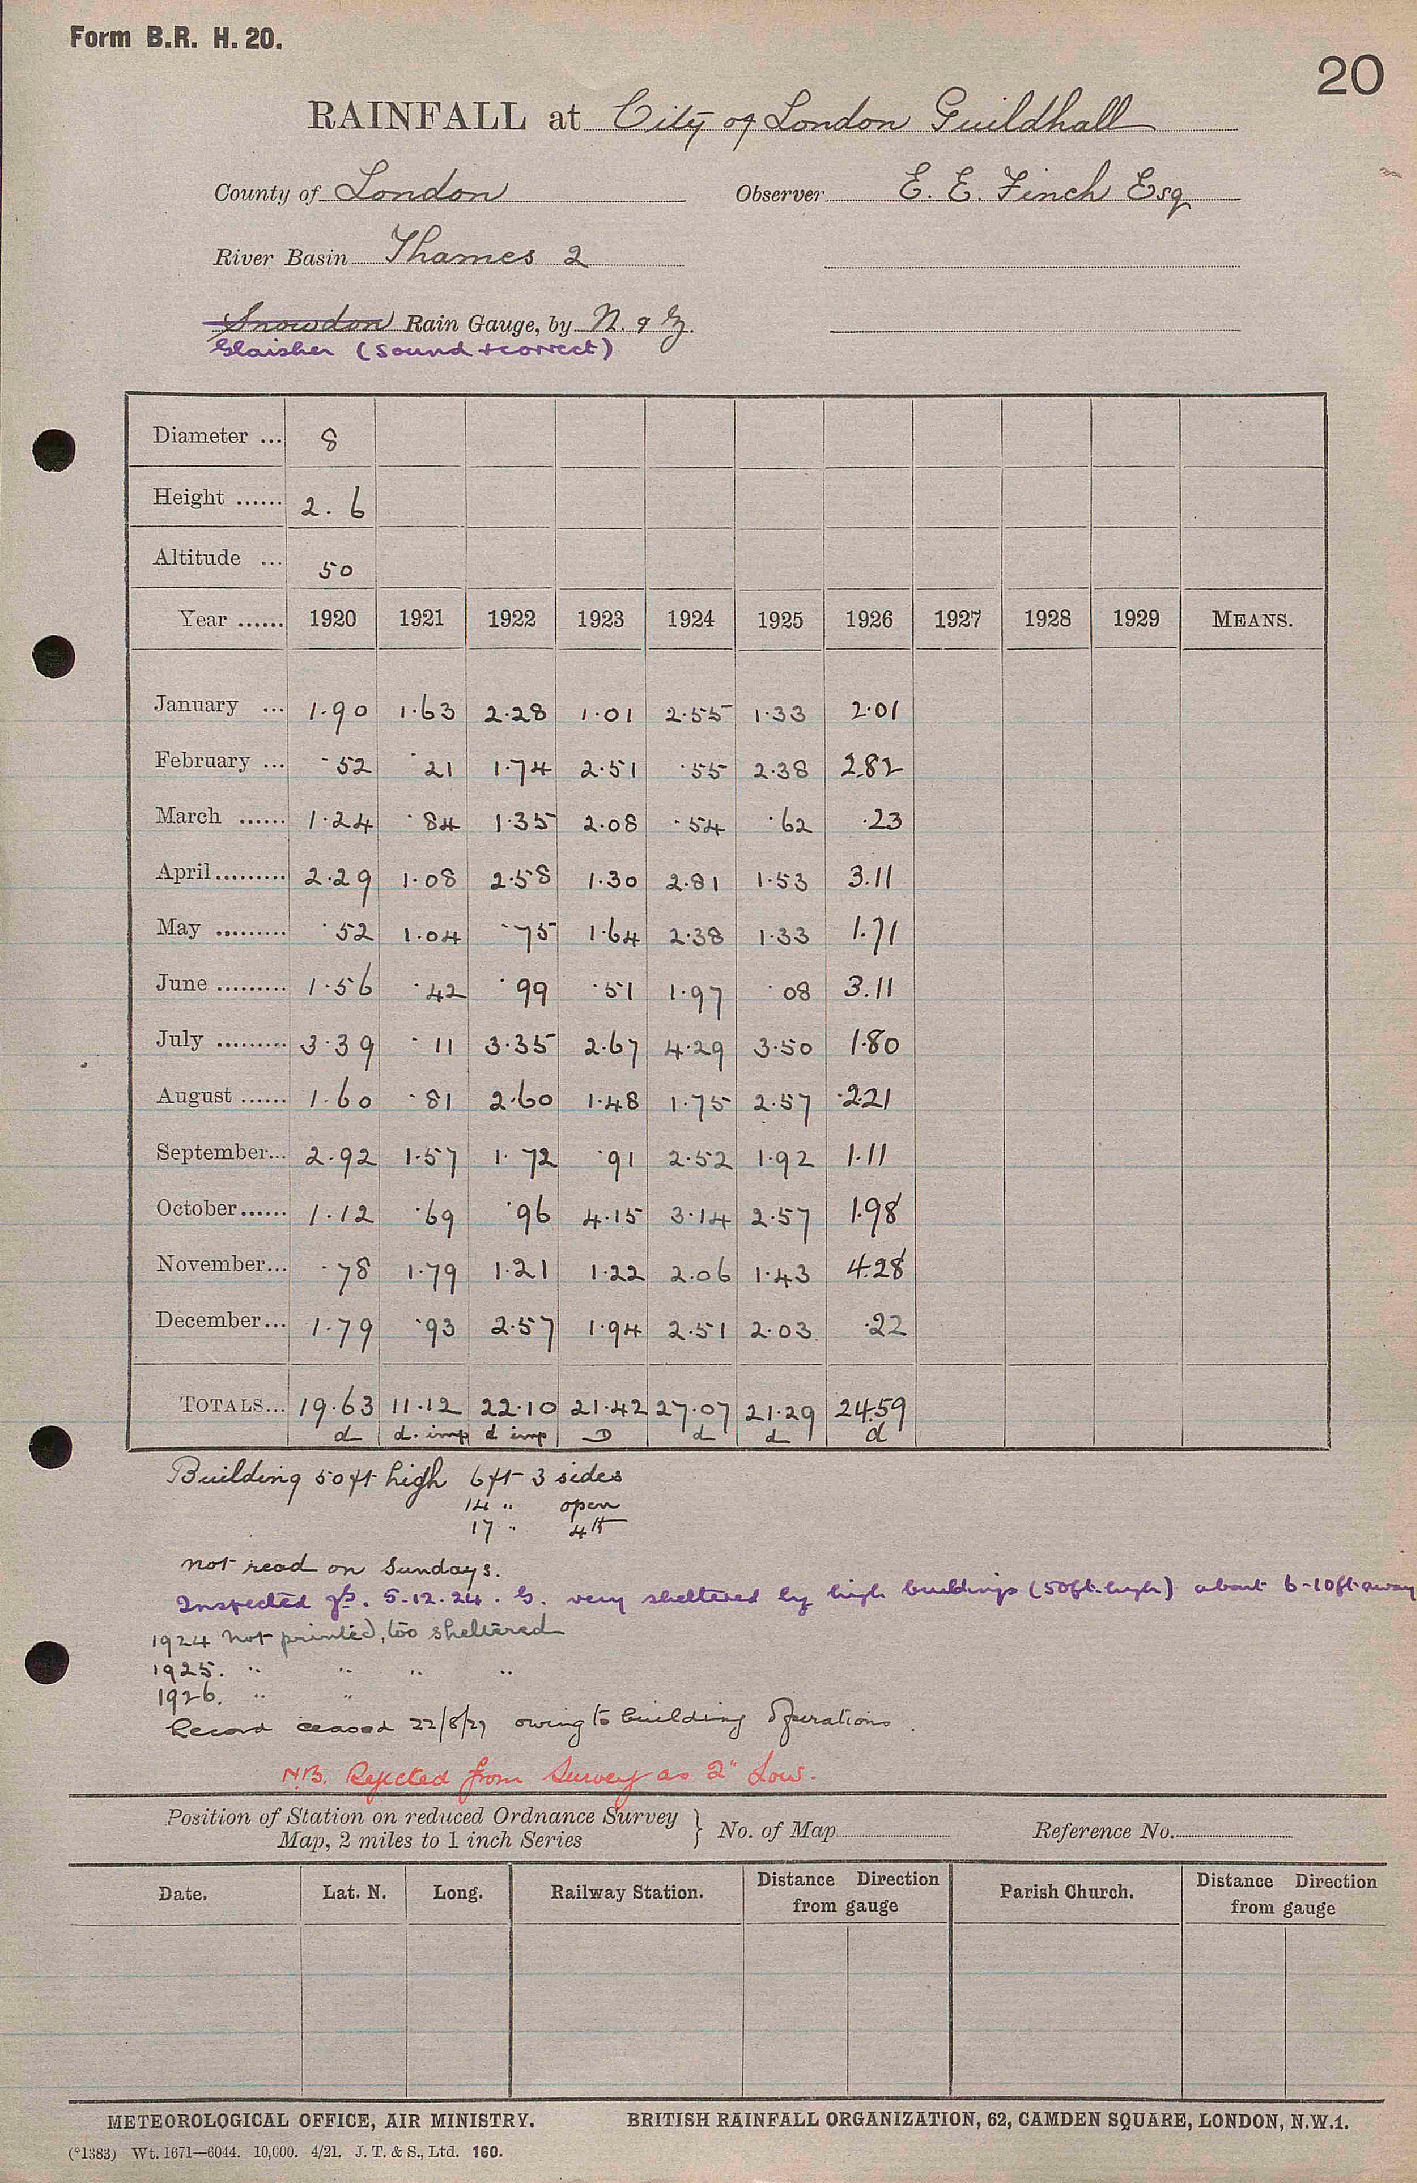 Form B.R. H. 20.
20
RAINFALL at City of London Guildhall
County of London Observer E. E. Finch Esq
River Basin Thames 2
Snowdon Rain Gauge, by N. & Z.
Glaisher (Sound & correct)
Diameter ... 8
Height ...... 2. 6
Altitude ... 50
Year ...... 1920 1921 1922 1923 1924 1925 1926 1927 1928 1929 MEANS.
January ... 1.90 1.63 2.28 1.01 2.55 1.33 2.01
February ... .52 .21 1.74 2.51 .55 2.38 2.82
March ...... 1.24 .84 1.35 2.08 .54 .62 .23
April ......... 2.29 1.08 2.58 1.30 2.81 1.53 3.11
May ......... .52 1.04 .75 1.64 2.38 1.33 1.71
June ......... 1.56 .42 .99 .51 1.97 .08 3.11
July ......... 3.39 .11 3.35 2.67 4.29 3.50 1.80
August ...... 1.60 .81 2.60 1.48 1.75 2.57 2.21
September... 2.92 1.57 1.72 .91 2.52 1.92 1.11
October...... 1.12 .69 .96 4.15 3.14 2.57 1.98
November... .78 1.79 1.21 1.22 2.06 1.43 4.28
December... 1.79 .93 2.57 1.94 2.51 2.03 .22
TOTALS... 19.63 11.12 22.10 21.42 27.07 21.29 24.59
d d. imp d imp D d d d
Building 50 ft high 6 ft 3 sides
14 " open
17 " 4th
not read on Sundays.
Inspected 5.12.24. G. very sheltered by high buildings (50ft. high) about 6-10ft away
1924 not printed, too sheltered
1925. " " " "
1926. " "
Record ceased 22/8/27 owing to building operations.
N.B. Rejected from Survey as 2" Low.
Position of Station on reduced Ordnance Survey } No. of Map Reference No.
Map, 2 miles to 1 inch Series
Date. Lat. N. Long. Railway Station. Distance Direction from gauge Parish Church. Distance Direction from gauge
METEOROLOGICAL OFFICE, AIR MINISTRY. BRITISH RAINFALL ORGANIZATION, 62, CAMDEN SQUARE, LONDON, N.W.1.
(*1383) Wt. 1671—6044. 10,000. 4/21. J. T. & S., Ltd. 160.